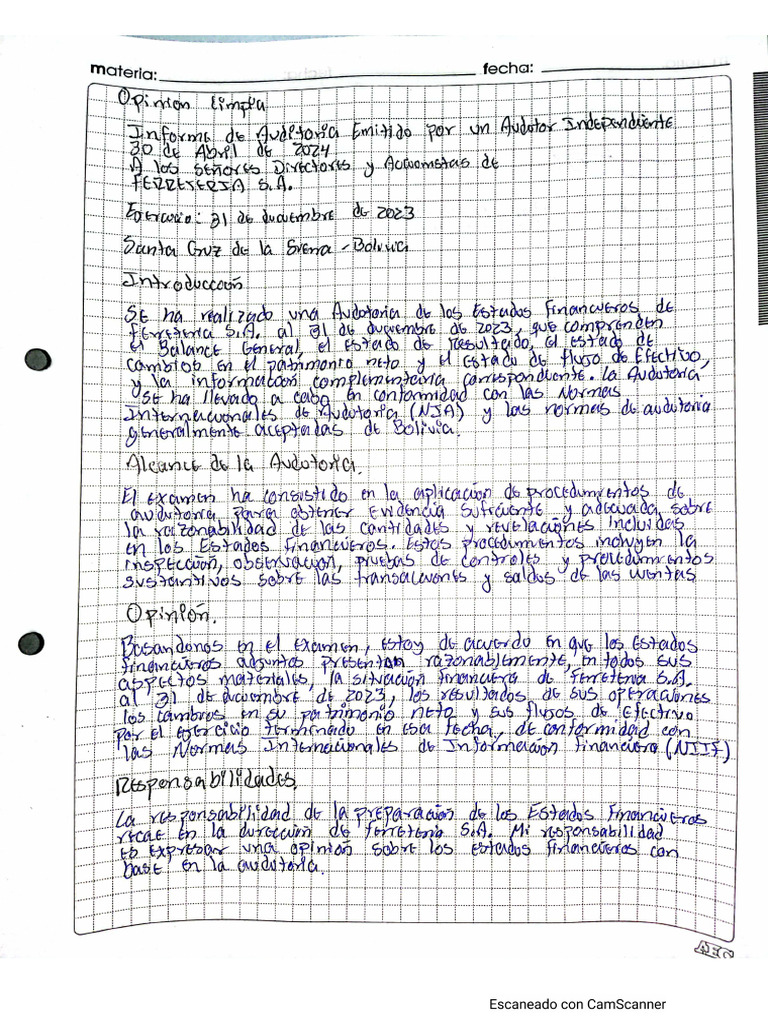 materia: fecha:
Opinion limpia
Informe de Auditoria Emitido por un Auditor Independiente
30 de Abril de 2024
A los Señores Directores y Accionistas de
FERRETERIA S.A.
Ejercicio: 31 de diciembre de 2023
Santa Cruz de la Sierra - Bolivia
Introducción
Se ha realizado una Auditoria de los Estados Financieros de
Ferreteria S.A. al 31 de diciembre de 2023, que comprenden
el Balance General, el estado de Resultado, el estado de
cambios en el patrimonio neto y el Estado de flujo de Efectivo,
y la información complementaria correspondiente. La Auditoria
se ha llevado a cabo en conformidad con las Normas
Internacionales de Auditoria (NIA) y las normas de auditoria
generalmente aceptadas de Bolivia.
Alcance de la Auditoria.
El examen ha consistido en la aplicación de procedimientos de
auditoria para obtener Evidencia suficiente y adecuada, sobre
la razonabilidad de las cantidades y revelaciones incluidas
en los Estados Financieros. Estos procedimientos incluyen la
inspección, observación, pruebas de controles y procedimientos
sustantivos sobre las transacciones y saldos de las cuentas
Opinión.
Basandonos en el examen, estoy de acuerdo en que los Estados
financieros adjuntos presentan razonablemente, en todos sus
aspectos materiales, la situación financiera de Ferreteria S.A.
al 31 de diciembre de 2023, los resultados de sus operaciones
los cambios en su patrimonio neto y sus flujos de Efectivo
por el ejercicio terminado en esa fecha, de conformidad con
las Normas Internacionales de Información Financiera (NIIF)
Responsabilidades.
La responsabilidad de la preparación de los Estados Financieros
recae en la dirección de Ferreteria S.A. Mi responsabilidad
es expresar una opinión sobre los estados financieros con
base en la auditoria.
Escaneado con CamScanner